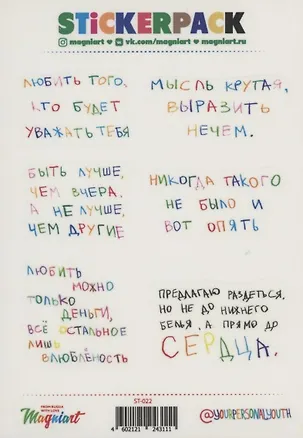 STiCKERPACK
magniart vk.com/magniart magniart.ru
ЛЮБИТЬ ТОГО,
КТО БУДЕТ
УВАЖАТЬ ТЕБЯ
МЫСЛЬ КРУТАЯ,
ВЫРАЗИТЬ
НЕЧЕМ.
БЫТЬ ЛУЧШЕ,
ЧЕМ ВЧЕРА.
А НЕ ЛУЧШЕ,
ЧЕМ ДРУГИЕ
НИКОГДА ТАКОГО
НЕ БЫЛО И
ВОТ ОПЯТЬ
ЛЮБИТЬ
МОЖНО
ТОЛЬКО
ДЕНЬГИ,
ВСЁ ОСТАЛЬНОЕ
ЛИШЬ
ВЛЮБЛЁНОСТЬ
ПРЕДЛАГАЮ РАЗДЕТЬСЯ,
НО НЕ ДО НИЖНЕГО
БЕЛЬЯ, А ПРЯМО ДО
СЕРДЦА.
FROM RUSSIA
WITH LOVE
Magniart
ST-022
4 602121 243111
@YOURPERSONALYOUTH